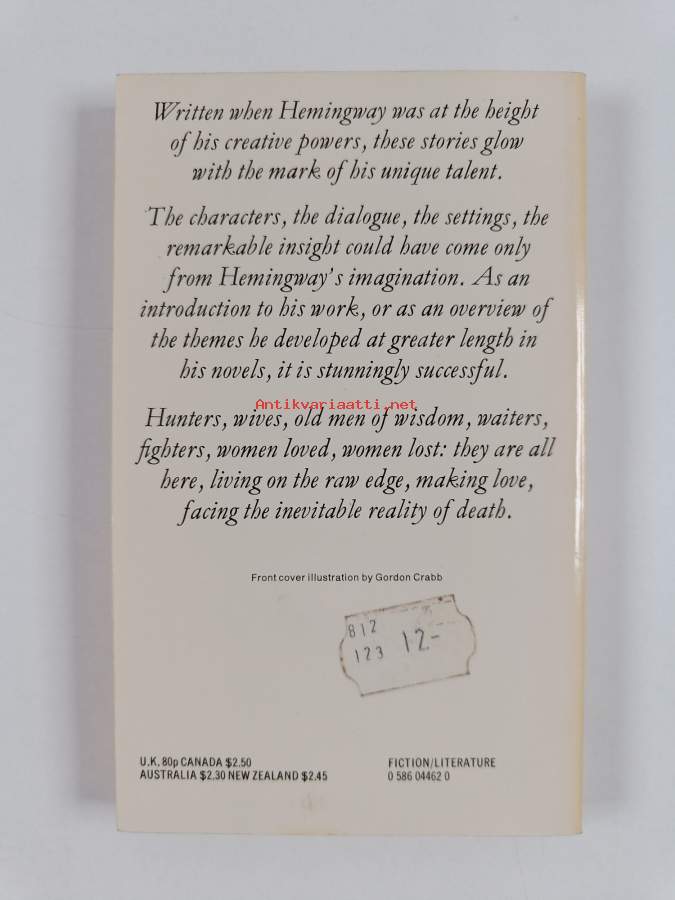 Written when Hemingway was at the height
of his creative powers, these stories glow
with the mark of his unique talent.
The characters, the dialogue, the settings, the
remarkable insight could have come only
from Hemingway's imagination. As an
introduction to his work, or as an overview of
the themes he developed at greater length in
his novels, it is stunningly successful.
Antikvariaatti.net
Hunters, wives, old men of wisdom, waiters,
fighters, women loved, women lost: they are all
here, living on the raw edge, making love,
facing the inevitable reality of death.
Front cover illustration by Gordon Crabb
812
123 12-
U.K. 80p CANADA $2.50
AUSTRALIA $2.30 NEW ZEALAND $2.45
FICTION/LITERATURE
0 586 04462 0